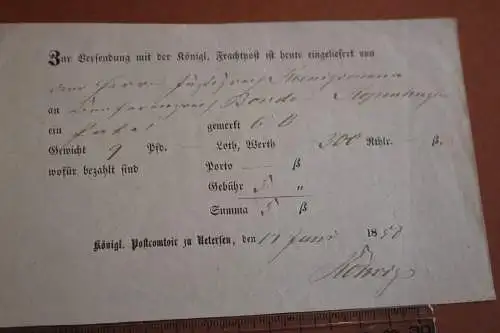 Zur Versendung mit der Königl. Frachtpost ist heute eingeliefert von
dem Herrn Justizrath
an Bonde Kopenhagen
ein Paket gemerkt C B
Gewicht 9 Pfd. — Loth, Werth 300 Rthlr. — ß,
wofür bezahlt sind Porto — ß
Gebühr 5 "
Summa 5 ß
Königl. Postcomtoir zu Uetersen, den 17 Juni 18